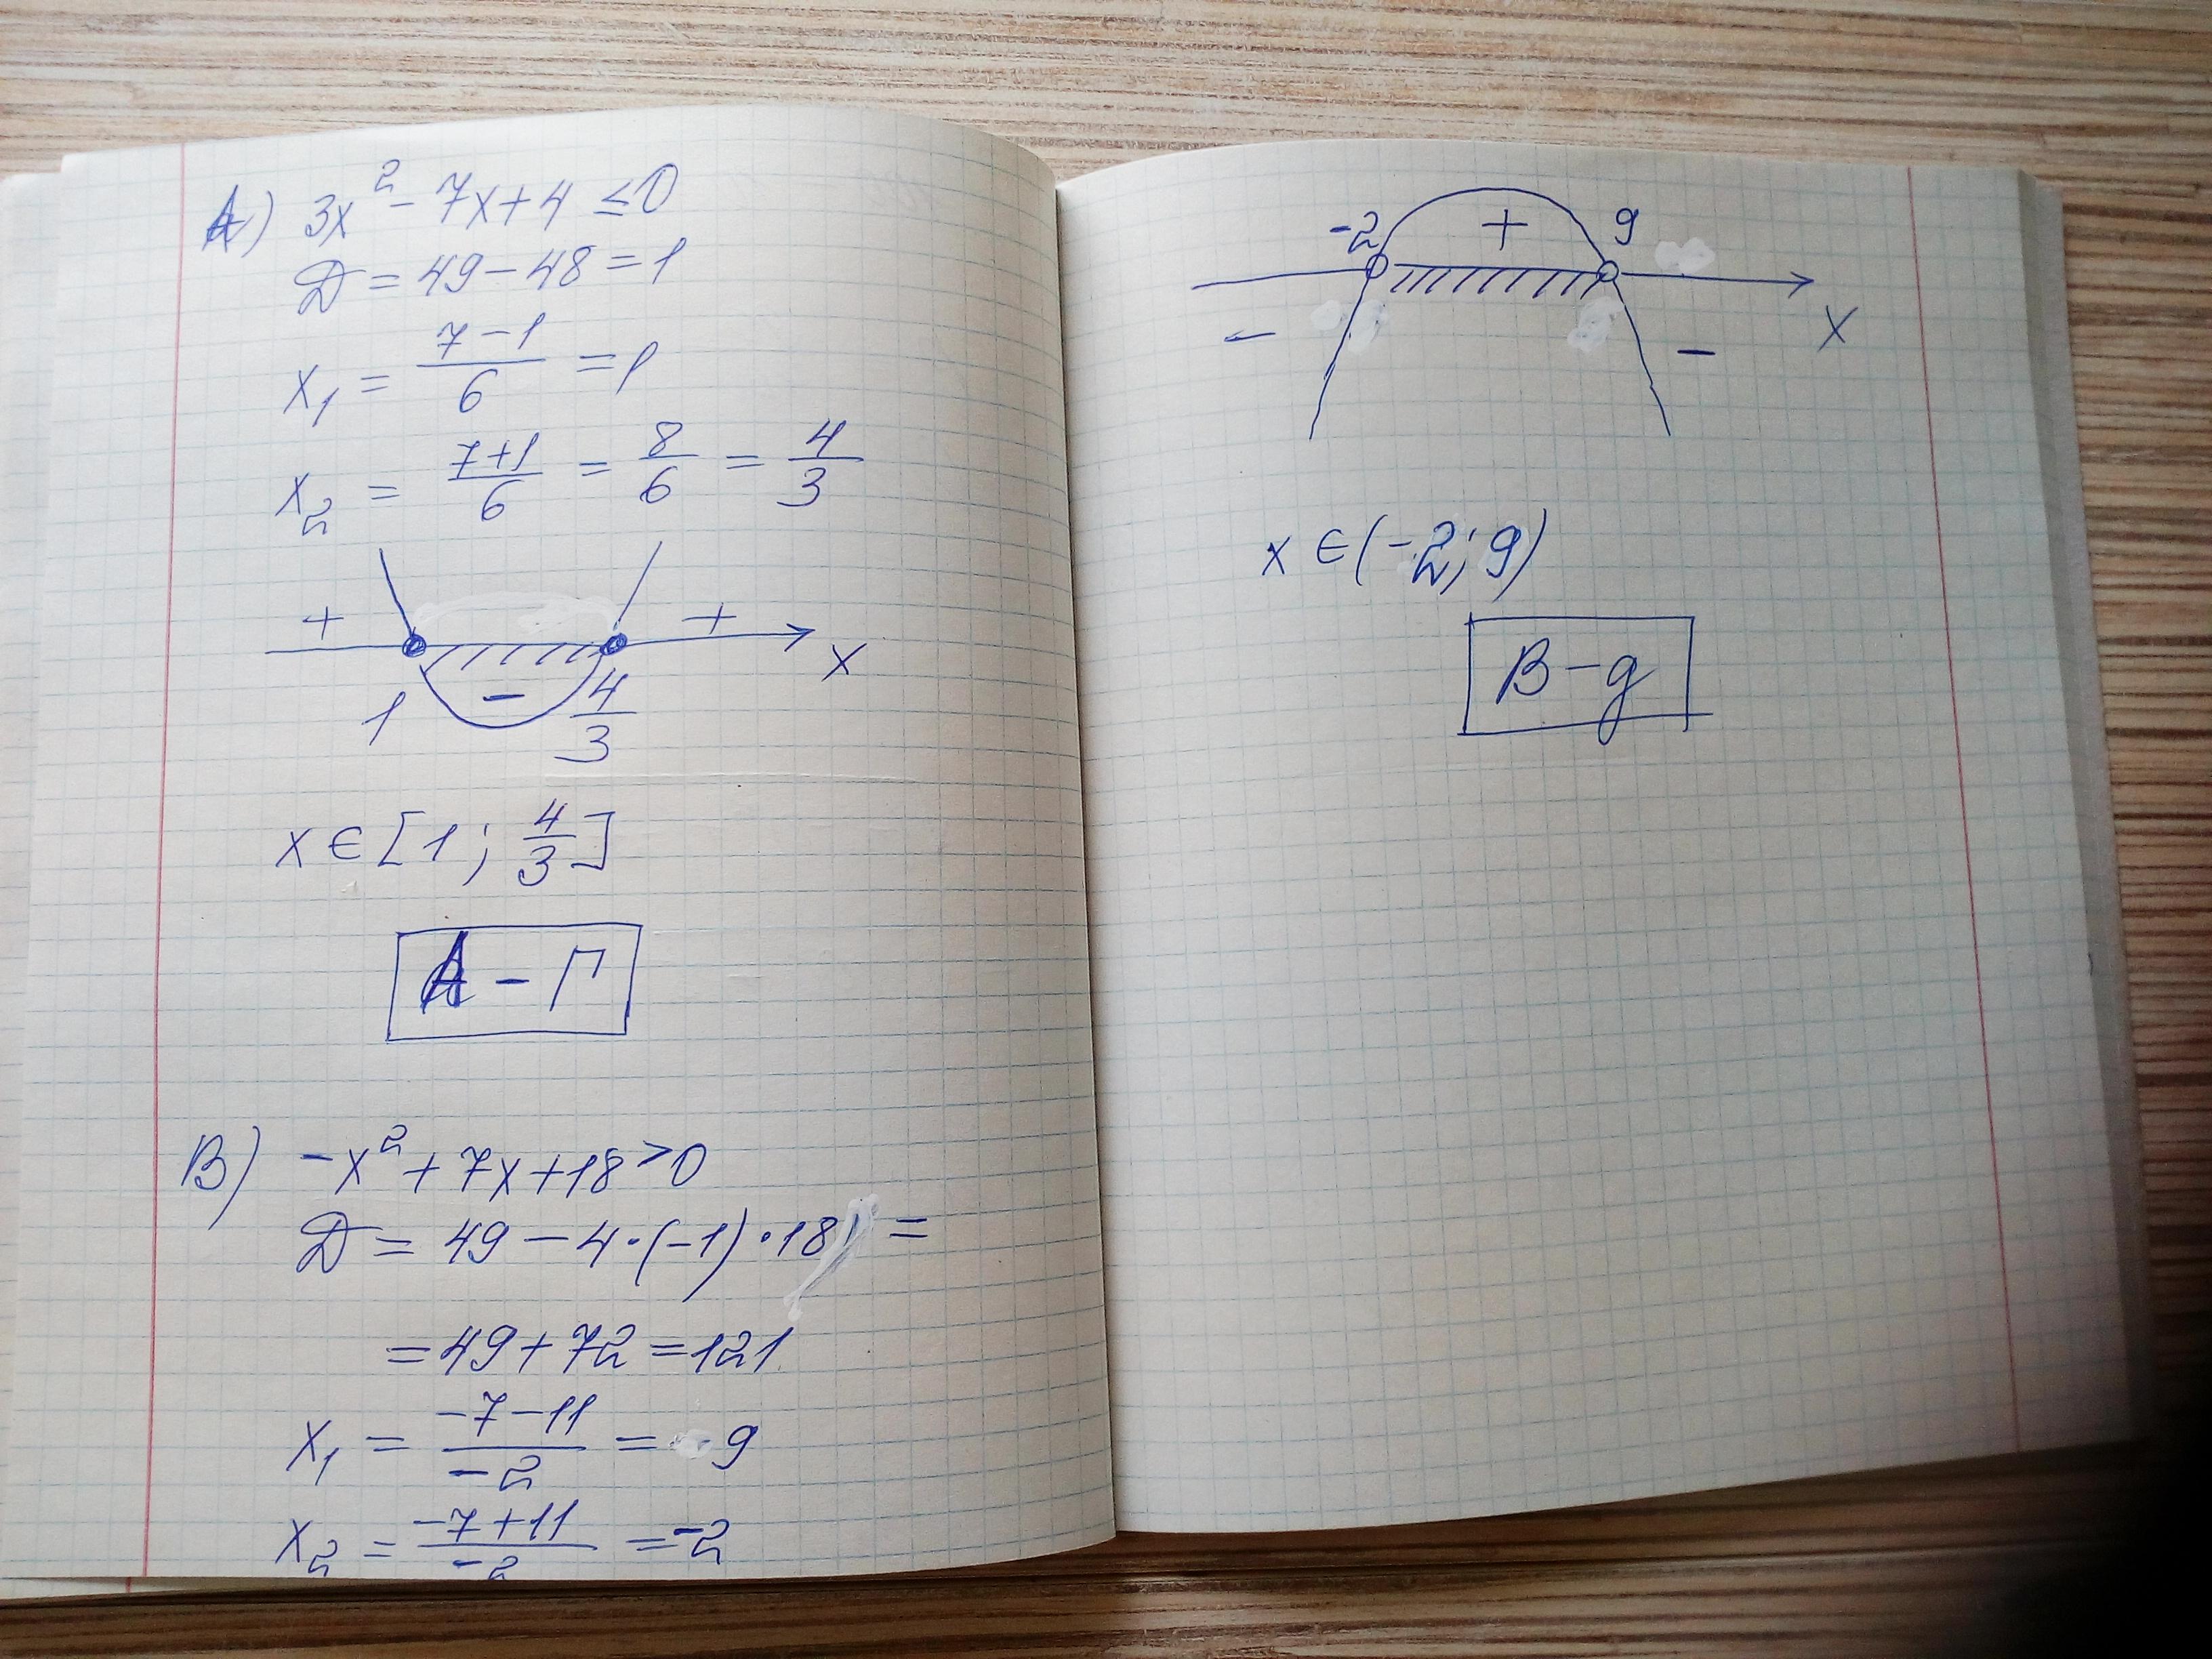 А) 3x² - 7x + 4 ≤ 0
D = 49 - 48 = 1
x₁ = (7 - 1)/6 = 1
x₂ = (7 + 1)/6 = 8/6 = 4/3
+ +
x
1 - 4/3
x ∈ [1; 4/3]
А - Г
В) -x² + 7x + 18 > 0
D = 49 - 4·(-1)·18 =
= 49 + 72 = 121
x₁ = (-7 - 11)/-2 = 9
x₂ = (-7 + 11)/-2 = -2
-2 + 9
- - x
x ∈ (-2; 9)
В - д